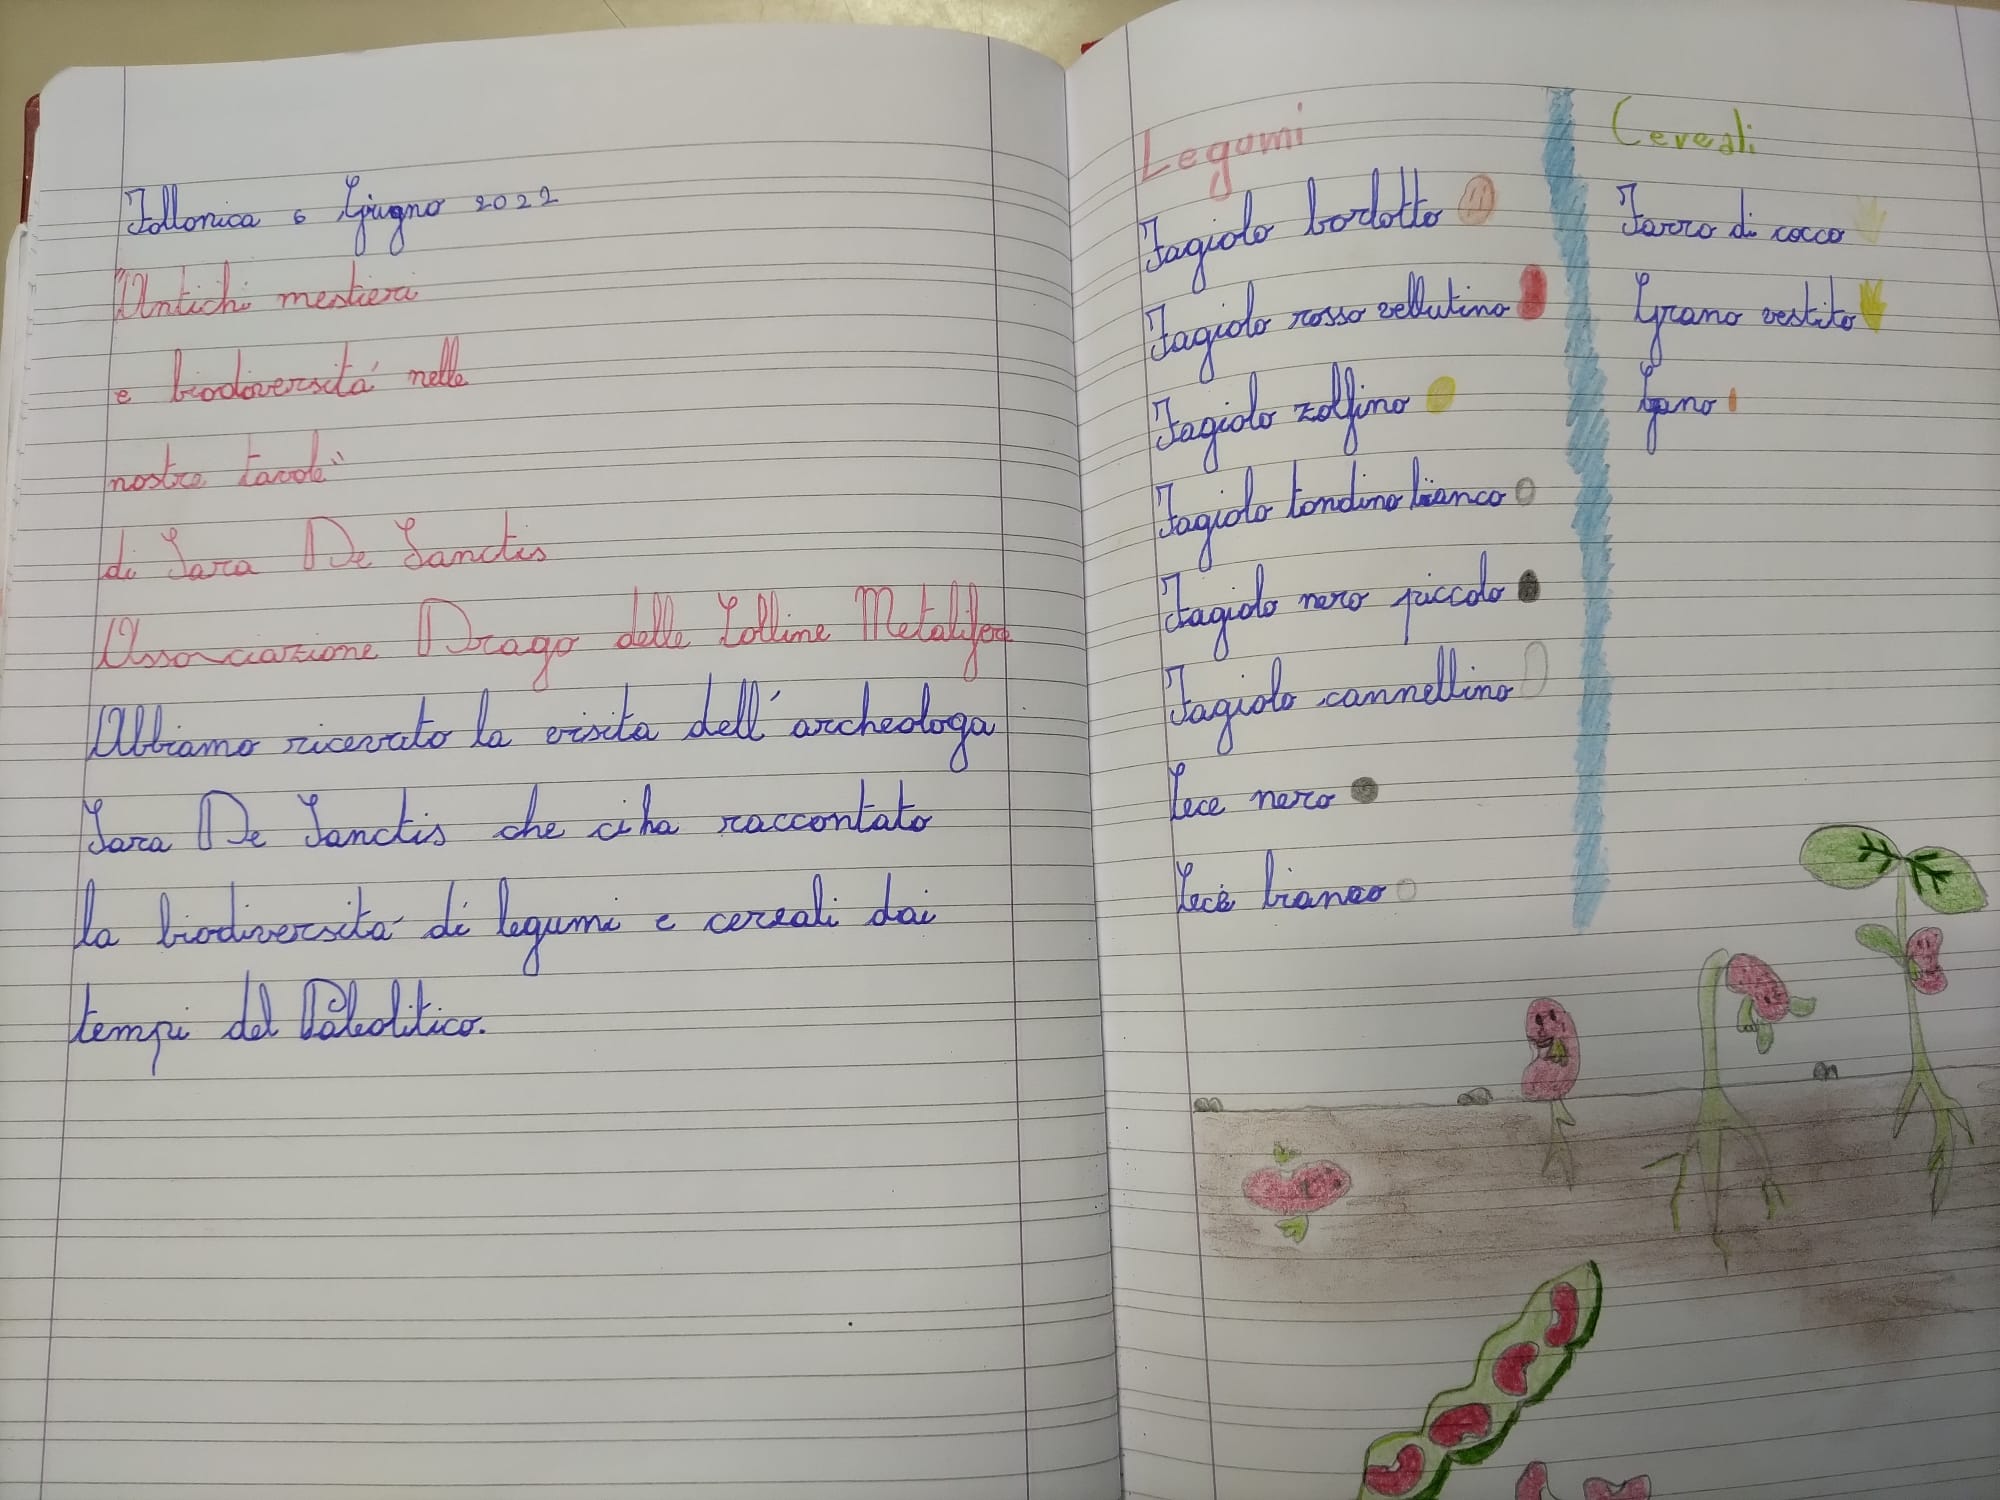 Follonica 6 Giugno 2022
"Antichi mestieri
e biodiversitá nelle
nostre tavole"
di Sara De Sanctis
Associazione Drago delle Colline Metalifere
Abbiamo ricevuto la visita dell'archeologa
Sara De Sanctis che ci ha raccontato
la biodiversitá di legumi e cereali dai
tempi del Paleolitico.
Legumi
Fagiolo borlotto
Fagiolo rosso vellutino
Fagiolo zolfino
Fagiolo tondino bianco
Fagiolo nero piccolo
Fagiolo cannellino
Cece nero
Cece bianco
Cereali
Farro di cocco
Grano vestito